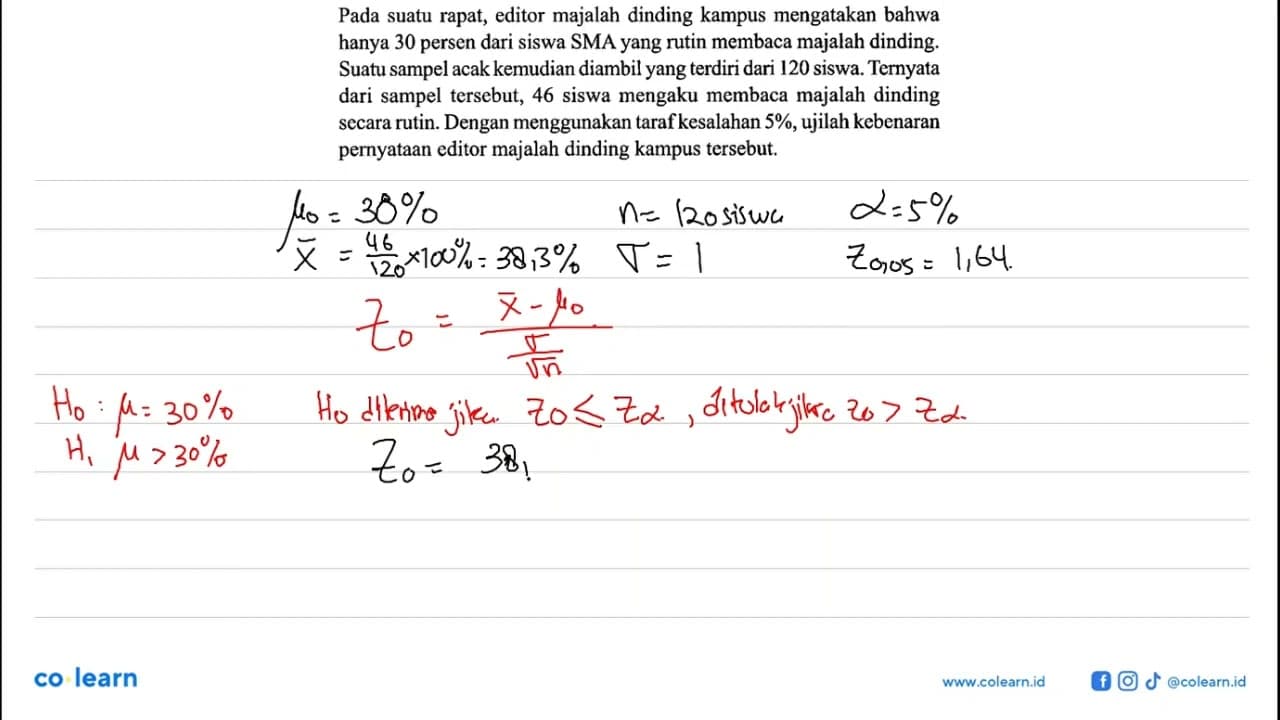 Pada suatu rapat, editor majalah dinding kampus mengatakan bahwa
hanya 30 persen dari siswa SMA yang rutin membaca majalah dinding.
Suatu sampel acak kemudian diambil yang terdiri dari 120 siswa. Ternyata
dari sampel tersebut, 46 siswa mengaku membaca majalah dinding
secara rutin. Dengan menggunakan taraf kesalahan 5%, ujilah kebenaran
pernyataan editor majalah dinding kampus tersebut.
μ₀ = 30% n = 120 siswa α = 5%
x̄ = 46/120 × 100% = 38,3% σ = 1 Z₀,₀₅ = 1,64.
Z₀ = (x̄ - μ₀) / (σ/√n)
H₀ : μ = 30% H₀ diterima jika Z₀ ≤ Zα, ditolak jika Z₀ > Zα
H₁ μ > 30% Z₀ = 38,
co learn www.colearn.id @colearn.id